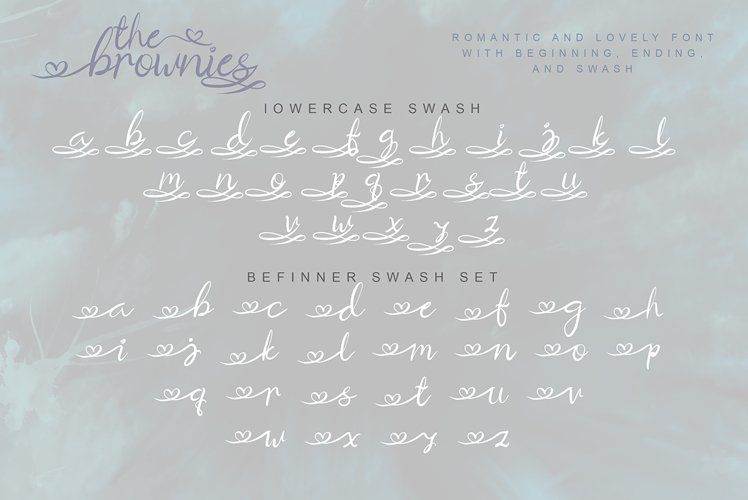 the
brownies
ROMANTIC AND LOVELY FONT
WITH BEGINNING, ENDING,
AND SWASH
lOWERCASE SWASH
a b c d e f g h i j k l
m n o p q r s t u
v w x y z
BEFINNER SWASH SET
a b c d e f g h
i j k l m n o p
q r s t u v
w x y z